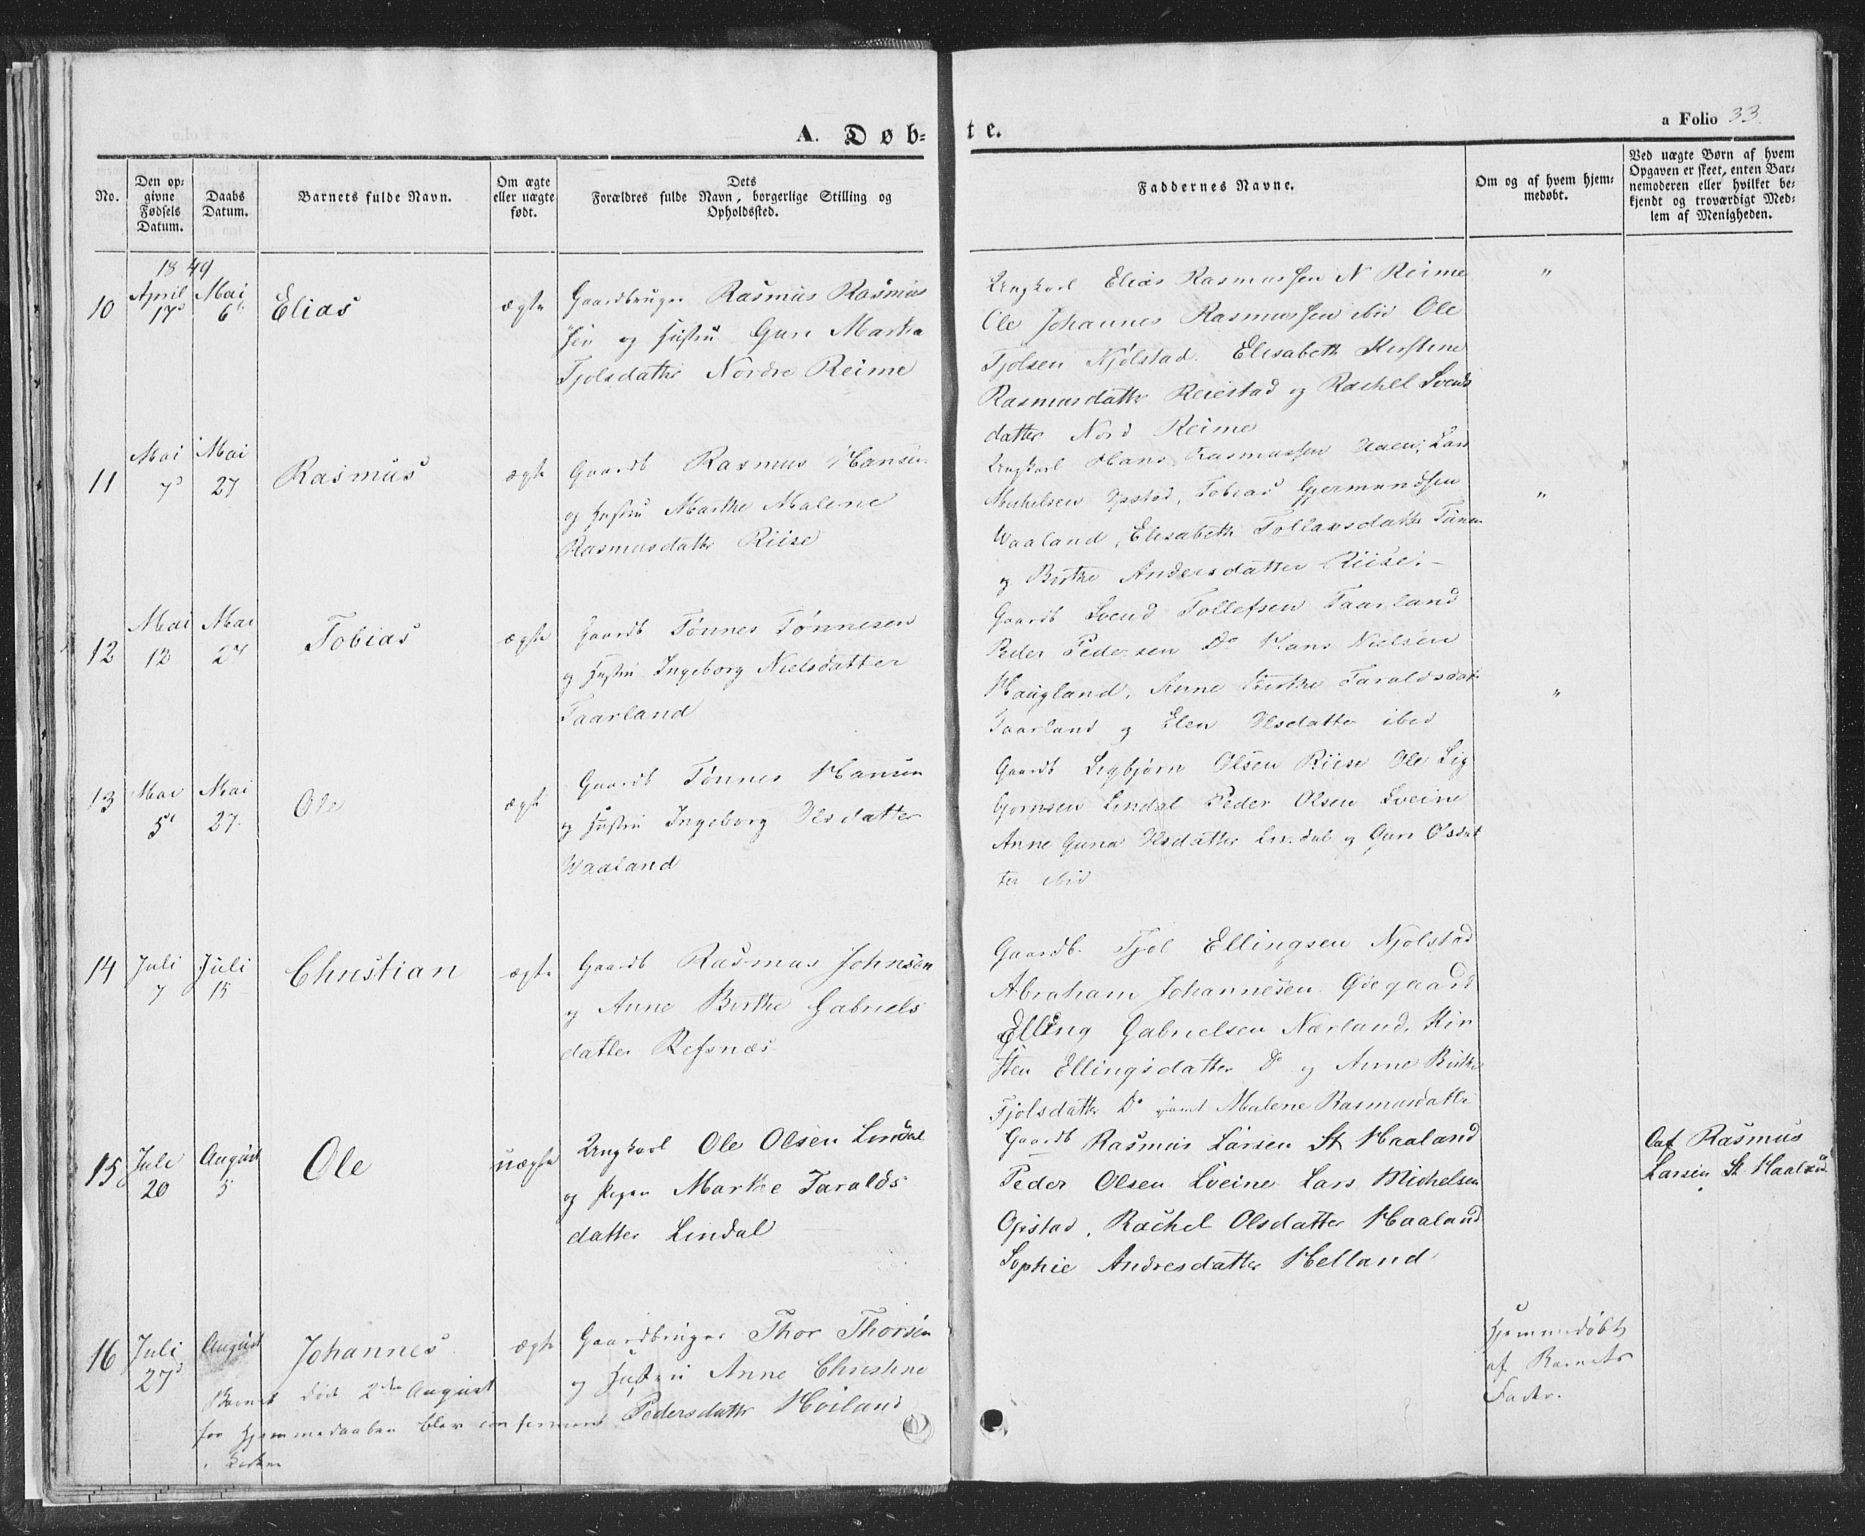 A. Døb-
te.
a Folio 33.
No.
Den op-
givne
Fødsels
Datum.
Daabs
Datum.
Barnets fulde Navn.
Om ægte
eller uægte
født.
Dets
Forældres fulde Navn, borgerlige Stilling og
Opholdssted.
Faddernes Navne.
Om og af hvem hjem-
medøbt.
Ved uægte Børn af hvem
Opgaven er skeet, enten Bar-
nemoderen eller hvilket be-
kjendt og troværdigt Med-
lem af Menigheden.
1849
10
April
17d
Mai
6t
Elias
ægte
Gaardbruger Rasmus Rasmus
sen og Hustru Guri Martha
Tjølsdatter Nordre Reime
Ungkarl Elias Rasmussen N Reime
Ole Johannes Rasmussen ibid Ole
Tjølsen Njølstad. Elisabeth Kirstine
Rasmusdatter Reiestad og Rachel Svends
datter Nord Reime
"
11
Mai
7d
Mai
27
Rasmus
ægte
Gaardb Rasmus Hansen
og Hustru Marthe Malene
Rasmusdatter Riise
Ungkarl Hans Rasmussen Aaen, Lars
Michelsen Opstad, Tobias Gjermundsen
Waaland, Elisabeth Tollavsdatter
og Birthe Andersdatter Riise.
"
12
Mai
12
Mai
27
Tobias
ægte
Gaardb Tønnes Tønnesen
og Hustru Ingeborg Nielsdatter
Taarland
Gaardb Svend Tollefsen Taarland
Peder Pedersen Do Hans Nielsen
Haugland, Anne Birthe Taraldsdat
Taarland og Elen Olsdatter ibid
"
13
Mai
5t
Mai
27.
Ole
ægte
Gaardb Tønnes Hansen
og Hustru Ingeborg Olsdatter
Waaland
Gaardb Sigbjørn Olsen Riise Ole Sig
bjørnsen Lindal Peder Olsen Sveine
Anne Guria Olsdatter Lindal og Guri Olsdat
ter ibid
14
Juli
7
Juli
15
Christian
ægte
Gaardb Rasmus Johnsen
og Anne Birthe Gabriels
datter Refsnæs
Gaardb. Tjøl Ellingsen Njølstad
Abraham Johannesen Ødegaard
Elling Gabrielsen Nærland, Kir
sten Ellingsdatter Do og Anne Birthe
Tjølsdatter Do samt Malene Rasmusdatter
15
Juli
20
August
5
Ole
uægte
Ungkarl Ole Olsen Lindal
og Pigen Marthe Taralds
datter Lindal
Gaardb Rasmus Larsen St Haaland
Peder Olsen Sveine Lars Michelsen
Opstad, Rachel Olsdatter Haaland
Sophie Andresdatter Helland
Oaf Rasmus
Larsen St Haaland
16
Juli
27d
August
Johannes
ægte
Gaardbruger Thor Thorsen
og Hustru Anne Christine
Pedersdatter Høiland
Barnet døde 2den August
før Hjemmedaaben blev confirmeret
i Kirken
Hjemmedøbt
af Barnets
Fader.